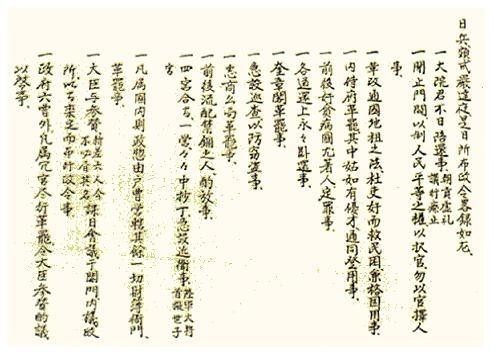 日兵頗嚴是日所布政令畧錄如左
一大院君不日陪還事 朝貢虛禮議行廢止
一閉止門閥以制人民平等之權以人擇官勿以官擇人
事
一革改通國地租之法杜吏奸而救民困兼裕國用事
一內侍府革罷其中如有優才通同登用事
一前後奸貪病國尤著人定罪事
一各道還上永々臥還事
一奎章閣革罷事
一急設巡查以防竊盜事
一惠商公局革罷事
一前後流配禁錮之人酌放事
一四營合爲一營々中抄丁急設近衛事 陸軍大將首擬世子
宮
一凡屬國內財政總由戶曹管轄其餘一切財簿衙門
革罷事
一大臣与參贊 新差六人今不必書其名 課日會議于閤門內議政
所以爲稟定而布行政令事
一政府六曹外凡屬冗官盡行革罷令大臣參贊酌議
以啓事